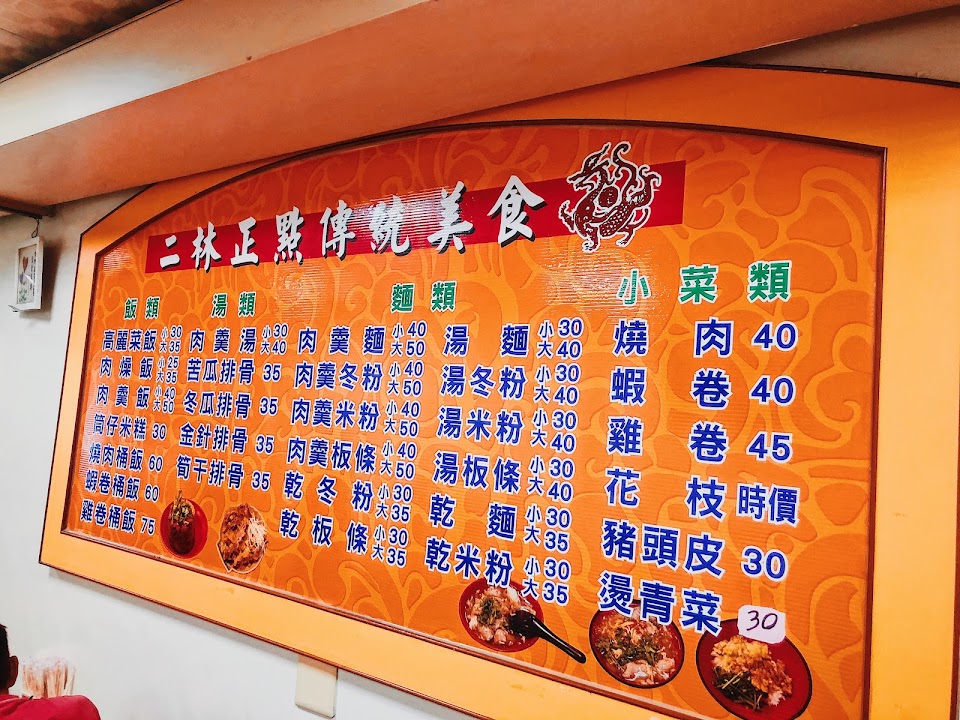 二林正點傳統美食
飯類
高麗菜飯 小30 大35
肉燥飯 小25 大35
肉羹飯 小40 大50
筒仔米糕 30
燒肉桶飯 60
蝦卷桶飯 60
雞卷桶飯 75
湯類
肉羹湯 小30 大40
苦瓜排骨 35
冬瓜排骨 35
金針排骨 35
筍干排骨 35
麵類
肉羹麵 小40 大50
肉羹冬粉 小40 大50
肉羹米粉 小40 大50
肉羹板條 小40 大50
乾冬粉 小30 大35
乾板條 小30 大35
湯麵 小30 大40
湯冬粉 小30 大40
湯米粉 小30 大40
湯板條 小30 大40
乾麵 小30 大35
乾米粉 小30 大35
小菜類
燒肉 40
蝦卷 40
雞卷 45
花枝 時價
豬頭皮 30
燙青菜 30